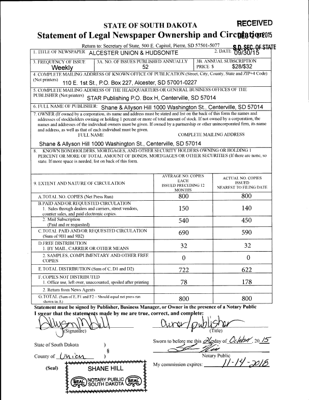 STATE OF SOUTH DAKOTA
RECEIVED
Statement of Legal Newspaper Ownership and Circulation
Return to: Secretary of State, 500 E. Capitol, Pierre, SD 57501-5077
S.D. SEC. OF STATE
1. TITLE OF NEWSPAPER ALCESTER UNION & HUDSONITE
2. DATE 09/30/15
3. FREQUENCY OF ISSUE
Weekly
3A. NO. OF ISSUES PUBLISHED ANNUALLY
52
3B. ANNUAL SUBSCRIPTION
PRICE $ $28/$32
4. COMPLETE MAILING ADDRESS OF KNOWN OFFICE OF PUBLICATION (Street, City, County, State and ZIP+4 Code)
(Not printers)
110 E. 1st St., P.O. Box 227, Alcester, SD 57001-0227
5. COMPLETE MAILING ADDRESS OF THE HEADQUARTERS OR GENERAL BUSINESS OFFICES OF THE
PUBLISHER (Not printers)
STAR Publishing P.O. Box H, Centerville, SD 57014
6. FULL NAME OF PUBLISHER Shane & Allyson Hill 1000 Washington St., Centerville, SD 57014
7. OWNER (If owned by a corporation, its name and address must be stated and
FULL NAME
COMPLETE MAILING ADDRESS
Shane & Allyson Hill 1000 Washington St., Centerville, SD 57014
8. KNOWN BONDHOLDERS, MORTGAGES, AND OTHER SECURITY HOLDERS OWNING OR HOLDING 1
PERCENT OR MORE OF TOTAL AMOUNT OF BONDS, MORTGAGES OR OTHER SECURITIES (If there are none, so
state. If more space is needed, list on back of this form.
9. EXTENT AND NATURE OF CIRCULATION
AVERAGE NO. COPIES
EACH
ISSUED PRECEDING 12
MONTHS
ACTUAL NO. COPIES
ISSUED
NEAREST TO FILING DATE
A. TOTAL NO. COPIES (Net Press Run)
800
800
B. PAID AND/OR REQUESTED CIRCULATION
1. Sales through dealers and carriers, street vendors,
counter sales, and paid electronic copies
150
140
2. Mail Subscription
(Paid and or requested)
540
450
C. TOTAL PAID AND/OR REQUESTED CIRCULATION
(Sum of 9B1 and 9B2)
690
590
D. FREE DISTRIBUTION
1. BY MAIL, CARRIER OR OTHER MEANS
32
32
2. SAMPLES, COMPLIMENTARY AND OTHER FREE
COPIES
0
0
E. TOTAL DISTRIBUTION (Sum of C, D1 and D2)
722
622
F. COPIES NOT DISTRIBUTED
1. Office use, left over, unaccounted, spoiled after printing
78
178
2. Return from News Agents
G. TOTAL (Sum of E, F1 and F2 - Should equal net press run
shown in A)
800
800
Statement must be signed by Publisher, Business Manager, or Owner in the presence of a Notary Public
I swear that the statements made by me are true, correct, and complete:
Allyson Hill
Owner/publisher
(Signature)
(Title)
State of South Dakota )
Sworn to before me this day of October 2015
County of Union )
Notary Public
(Seal)
SHANE HILL
SEAL NOTARY PUBLIC SOUTH DAKOTA SEAL
My commission expires: 11-14-2016